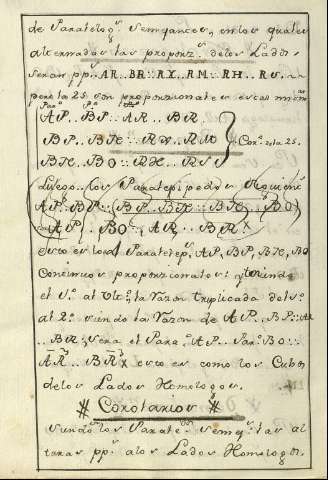 de Paralelog.s Semejances, en los quales
alternadas las proporz.s de los Lados
seran pp.s AR.. BR:: RX.. RM:: RH.. RS..
pero la 25. son proporzionales estas
AP.. BP.. AR.. BR
BP.. BK:: RX.. RM } Cor.º 2 la 25.
BK.. BO:: RH.. RS
Luego los Paralepipedos
AP.. BP:: BP.. BK:: BK.. BO
AP.. BO:: AR.. BR
esto es los 4 Paralelep.s AP, BP, BK, BO
Continuos proporzionales: y siendo
el 1.º al Ult.º la Razon triplicada del 1.º
al 2.º siendo la Razon de AP.. BP:: AR
.. BR; sera el Para.º AP.. Par.º BO::
AR.. BR esto es como los Cubos
de los Lados Homologos.
# Corolarios #
Paralel.s Semej.s las al
turas pp.s a los Lados Homologos.